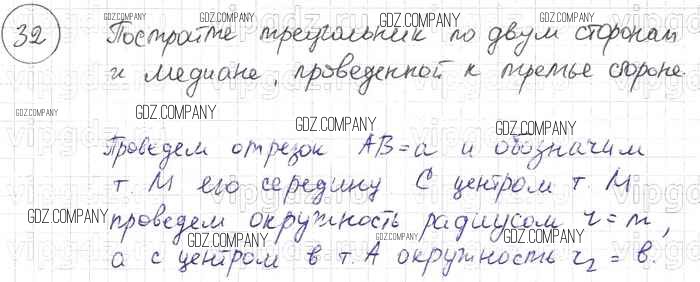 32 Построите треугольник по двум сторонам
и медиане, проведенной к третье стороне.
Проведем отрезок AB = a и обозначим
т. M его середину С центром т. M
проведем окружность радиусом r = m,
а с центром в т. A окружность r₂ = b.
GDZ.COMPANY
GDZ.COMPANY
GDZ.COMPANY
GDZ.COMPANY
GDZ.COMPANY
GDZ.COMPANY
GDZ.COMPANY
GDZ.COMPANY
GDZ.COMPANY
GDZ.COMPANY
GDZ.COMPANY
GDZ.COMPANY
GDZ.COMPANY